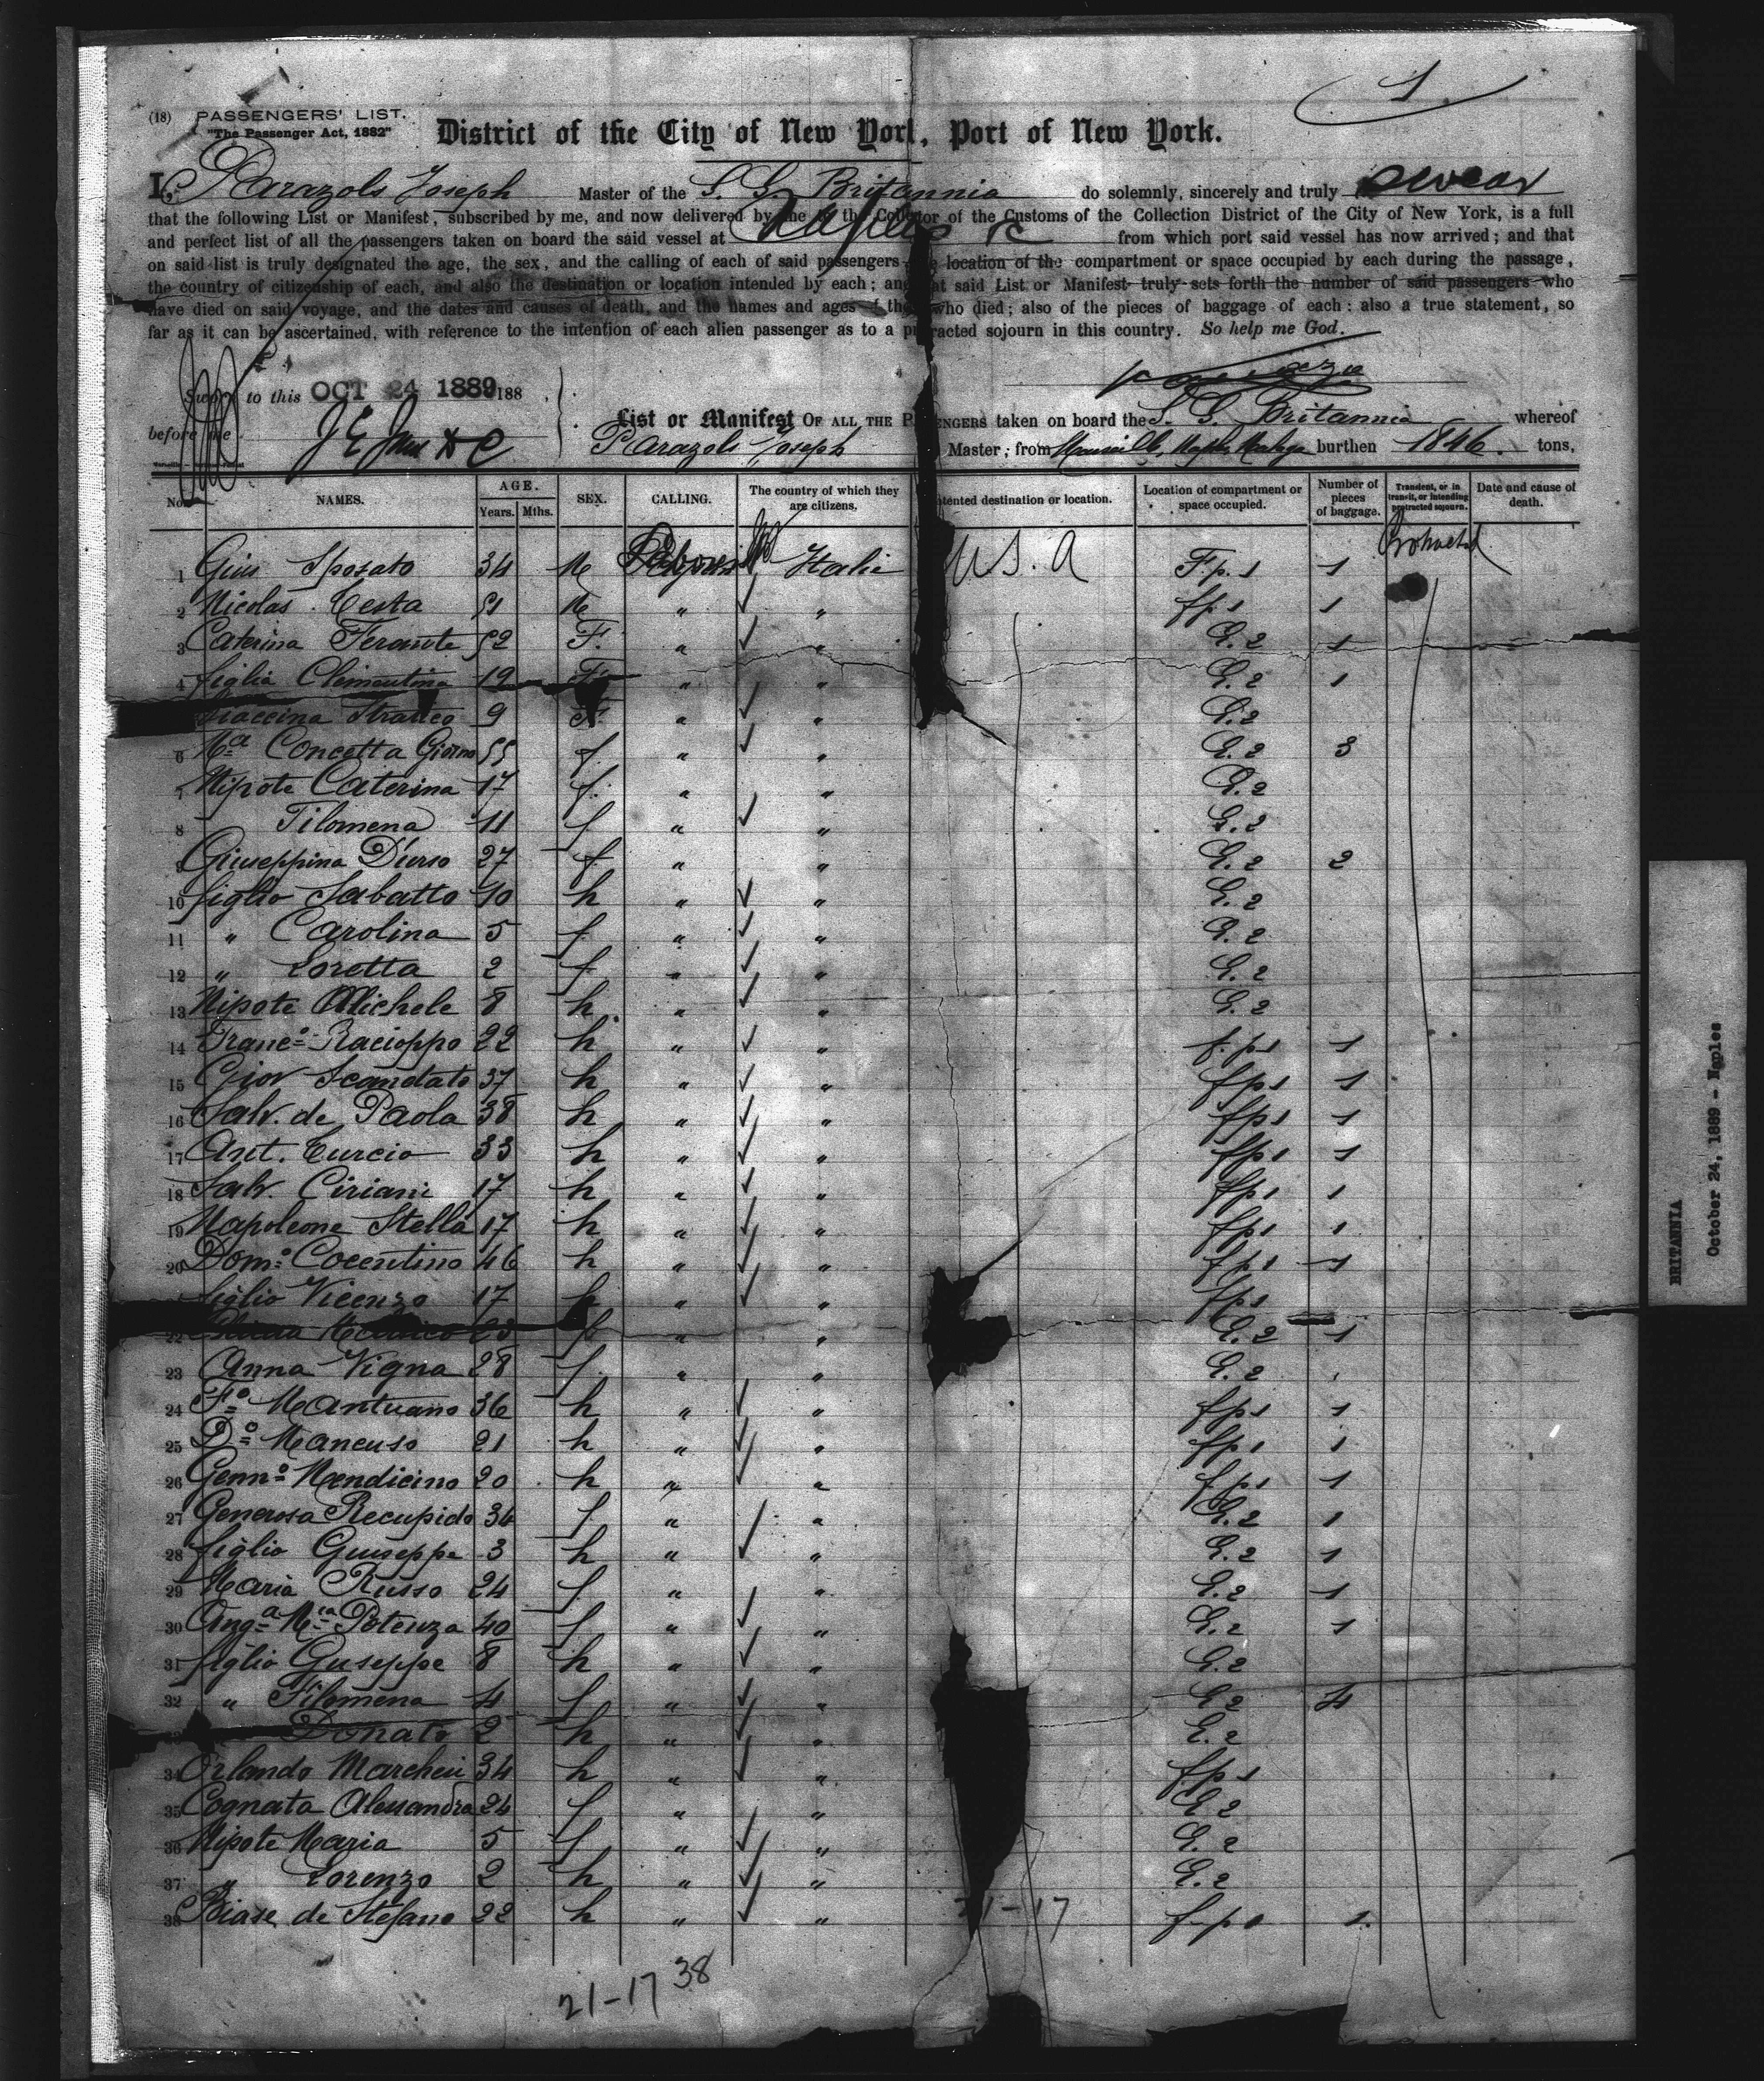 1.
(18) PASSENGERS' LIST.
"The Passenger Act, 1882"
District of the City of New York, Port of New York.
I, Parazols Joseph Master of the S. S. Britannia do solemnly, sincerely and truly swear
that the following List or Manifest, subscribed by me, and now delivered by me to the Collector of the Customs of the Collection District of the City of New York, is a full
and perfect list of all the passengers taken on board the said vessel at Naples &c from which port said vessel has now arrived; and that
on said list is truly designated the age, the sex, and the calling of each of said passengers location of the compartment or space occupied by each during the passage,
the country of citizenship of each, and also the destination or location intended by each; and that said List or Manifest truly sets forth the number of said passengers who
have died on said voyage, and the dates and causes of death, and the names and ages of those who died; also of the pieces of baggage of each: also a true statement, so
far as it can be ascertained, with reference to the intention of each alien passenger as to a protracted sojourn in this country. So help me God.
Sworn to this OCT 24 1889 188
before me
List or Manifest OF ALL THE PASSENGERS taken on board the S. S. Britannia whereof
Parazols Joseph Master; from Marseille, Naples, Malaga burthen 1846. tons,
No. NAMES. AGE. Years. Mths. SEX. CALLING. The country of which they are citizens. Intended destination or location. Location of compartment or space occupied. Number of pieces of baggage. Transient, or in transit, or intending protracted sojourn. Date and cause of death.
1 Gius Sposato 34 M Italie U S. A Fp. 1 1 Protracted
2 Nicolas Testa 51 M " " fp 1 1
3 Caterina Feraute 52 F. " " E. 2 1
4 figlia Clementina 19 F " " E. 2 1
Stratico 9 F. " " E. 2
6 Ma Concetta Giorno 55 f. " " E. 2 3
7 Nipote Caterina 17 f. " " E. 2
8 Filomena 11 f " " E. 2
9 Giuseppina D'urso 27 f " " E. 2 2
10 figlio Sabatto 10 h " " E. 2
11 " Carolina 5 f " " E. 2
12 " Loretta 2 f " " E. 2
13 Nipote Michele 8 h. " " E. 2
14 Franco Racioppo 22 h " " f. p 1 1
15 Giov Scandato 37 h " " fp 1 1
16 Salv. de Paola 38 h " " fp 1 1
17 Ant. Curcio 33 h " " fp 1 1
18 Salv. Ciriani 17 h " " fp 1 1
19 Napoleone Stella 17 h " " fp 1 1
20 Domo Cocentino 46 h " " fp 1 1
figlio Vicenzo 17 h " " fp 1
22 23 f " " E. 2 1
23 Anna Vigna 28 f. " " E. 2
24 Fo Mantuano 36 h " " fp 1 1
25 Do Mancuso 21 h " " fp 1 1
26 Genno Mendicino 20 h " " fp 1 1
27 Generosa Recupido 34 f " " E. 2 1
28 figlio Giuseppe 3 h " " E. 2 1
29 Maria Russo 24 f " " E. 2 1
30 Anga Mria Potenza 40 f " " E. 2 1
31 figlio Guseppe 8 h " " E. 2
32 " Filomena 4 f " " E 2 4
Donato 2 h " " E. 2
34 Orlando Marchesi 34 h " " fp 1
35 Cognata Alessandra 24 f " " E 2
36 Nipote Maria 5 f " " E. 2
37 " Lorenzo 2 h " " E. 2
38 Biase de Stefano 22 h " " 21-17 f. p 1 1.
21-17 38
BRITANNIA
October 24, 1889 - Naples